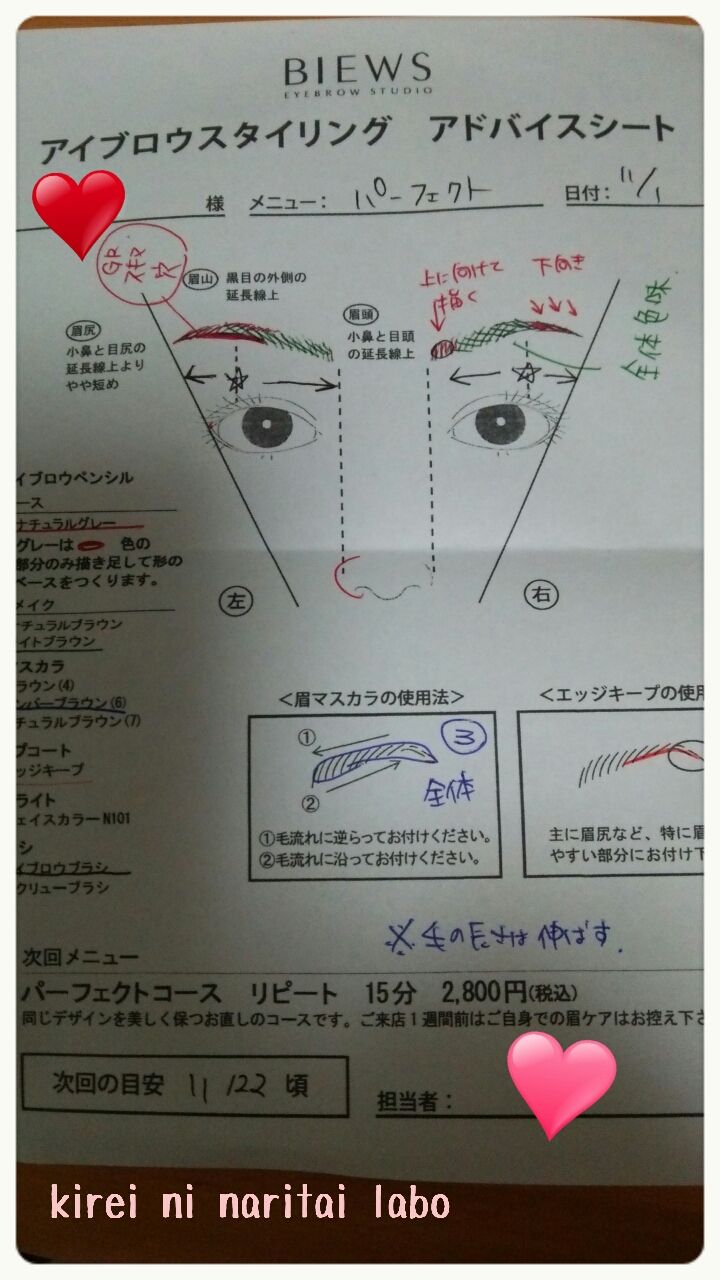 BIEWS
EYEBROW STUDIO
アイブロウスタイリング アドバイスシート
様 メニュー： パーフェクト 日付： 11/1
眉山 黒目の外側の
延長線上
眉尻
小鼻と目尻の
延長線上より
やや短め
眉頭
小鼻と目頭
の延長線上
上に向けて
描く
下向き
全体色味
イブロウペンシル
ース
ナチュラルグレー
グレーは 色の
部分のみ描き足して形の
ベースをつくります。
メイク
ナチュラルブラウン
イトブラウン
マスカラ
ラウン(4)
ンバーブラウン(6)
チュラルブラウン(7)
プコート
ッジキープ
ライト
ェイスカラーN101
シ
イブロウブラシ
クリューブラシ
左
右
＜眉マスカラの使用法＞
①
②
③
全体
①毛流れに逆らってお付けください。
②毛流れに沿ってお付けください。
＜エッジキープの使用
主に眉尻など、特に眉
やすい部分にお付け下
※毛の長さは伸ばす.
次回メニュー
パーフェクトコース リピート 15分 2,800円(税込)
同じデザインを美しく保つお直しのコースです。ご来店1週間前はご自身での眉ケアはお控え下さ
次回の目安 11/22 頃
担当者：
kirei ni naritai labo